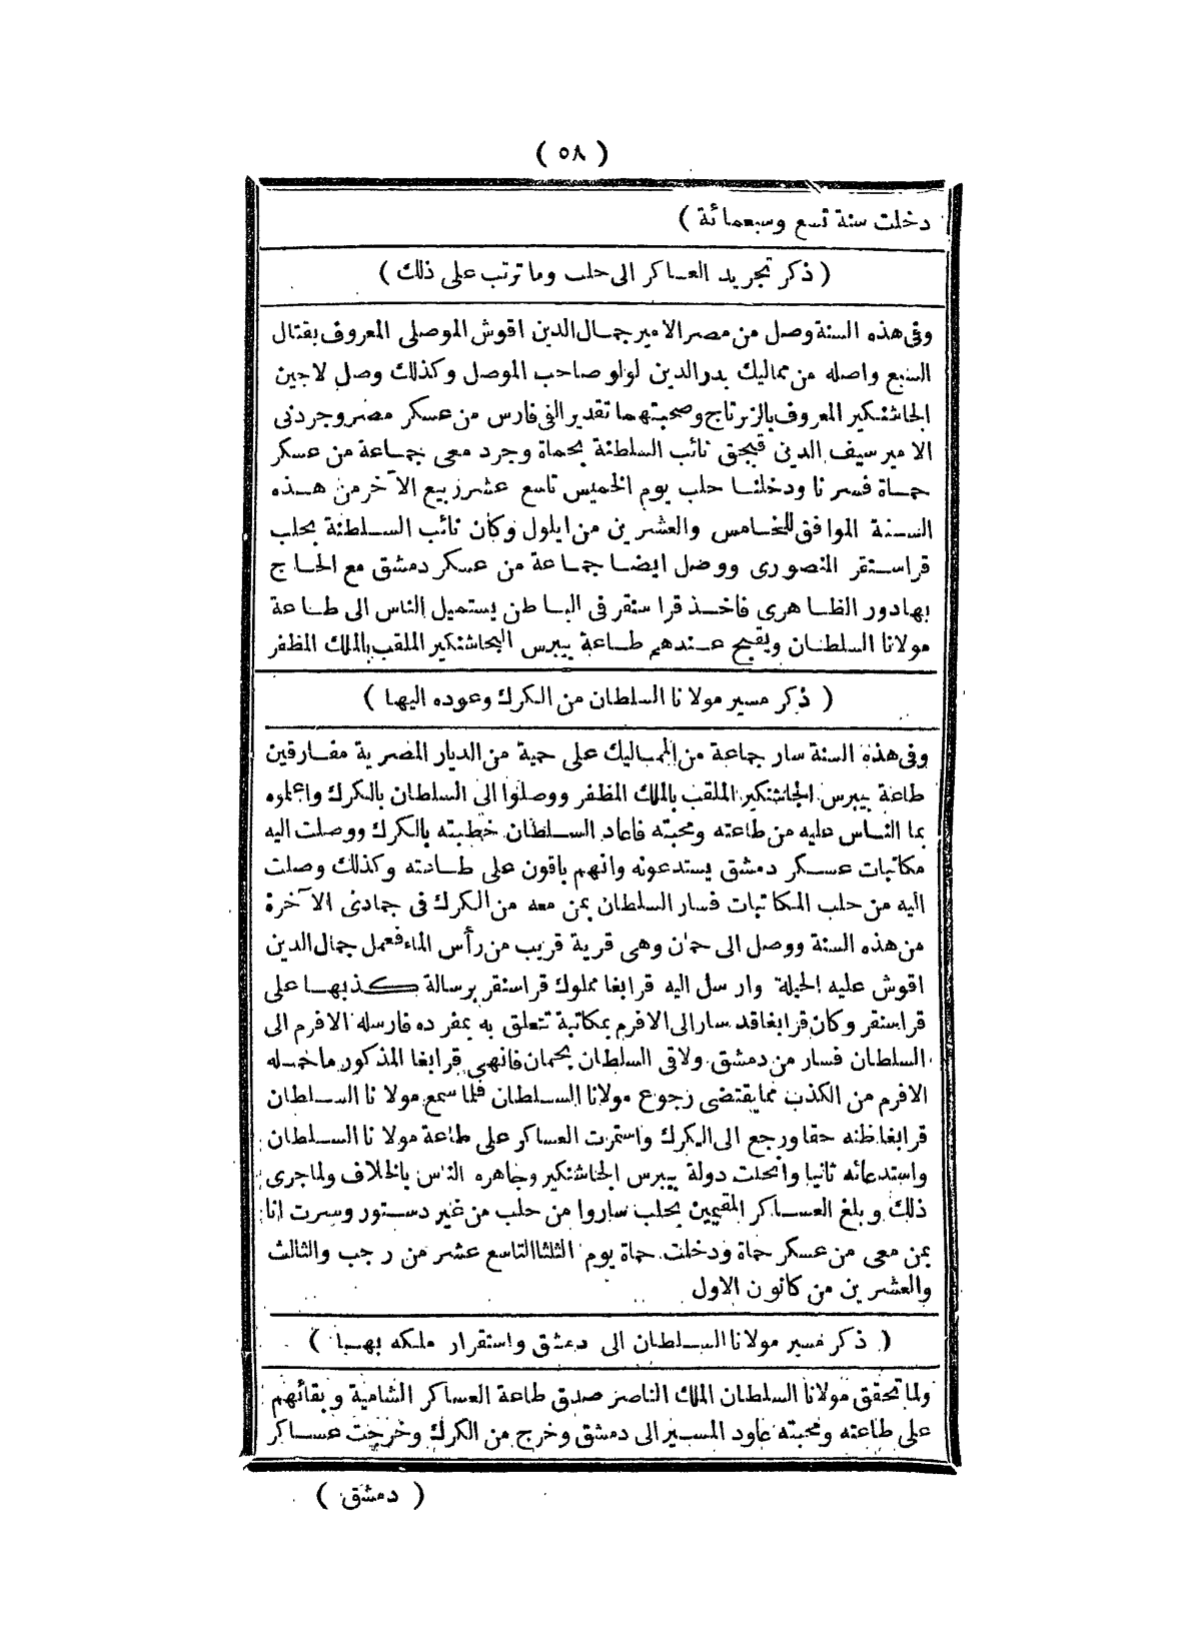 ( ٥٨ )
دخلت سنة تسع وسبعمائة )
( ذكر تجريد العساكر الى حلب وما ترتب على ذلك )
وفى هذه السنة وصل من مصر الامير جمال الدين اقوش الموصلى المعروف بقتال
السبع واصله من مماليك بدر الدين لولو صاحب الموصل وكذلك وصل لاجين
الجاشنكير المعروف بالزيرتاج وصحبتهما تقدير الفى فارس من عسكر مصر وجردنى
الامير سيف الدين قبجق نائب السلطنة بحماة وجرد معى جماعة من عسكر
حماة فسرنا ودخلنا حلب يوم الخميس تاسع عشر ربيع الآخر من هذه
السنة الموافق للخامس والعشرين من ايلول وكان نائب السلطنة بحلب
قراسنقر المنصورى ووصل ايضا جماعة من عسكر دمشق مع الحاج
بهادور الظاهرى فاخذ قراسنقر فى الباطن يستميل الناس الى طاعة
مولانا السلطان ويقبح عندهم طاعة بيبرس الجاشنكير الملقب بالملك المظفر
( ذكر مسير مولانا السلطان من الكرك وعوده اليها )
وفى هذه السنة سار جماعة من المماليك على حمية من الديار المصرية مفارقين
طاعة بيبرس الجاشنكير الملقب بالملك المظفر ووصلوا الى السلطان بالكرك واعلموه
بما الناس عليه من طاعته ومحبته فاعاد السلطان خطبته بالكرك ووصلت اليه
مكاتبات عسكر دمشق يستدعونه وانهم باقون على طاعته وكذلك وصلت
اليه من حلب المكاتبات فسار السلطان بمن معه من الكرك فى جمادى الآخرة
من هذه السنة ووصل الى حمان وهى قرية قريب من رأس الماء فعمل جمال الدين
اقوش عليه الحيلة وارسل اليه قرابغا مملوك قراسنقر برسالة كذبها على
قراسنقر وكان قرابغا قد سار الى الافرم بمكاتبة تتعلق به بمفرده فارسله الافرم الى
السلطان فسار من دمشق ولاقى السلطان بحمان فانهى قرابغا المذكور ما حمله
الافرم من الكذب مما يقتضى رجوع مولانا السلطان فلما سمع مولانا السلطان
قرابغا ظنه حقا ورجع الى الكرك واستمرت العساكر على طاعة مولانا السلطان
واستدعائه ثانيا وانحلت دولة بيبرس الجاشنكير وجاهره الناس بالخلاف ولما جرى
ذلك وبلغ العساكر المقيمين بحلب ساروا من حلب من غير دستور وسرت انا
بمن معى من عسكر حماة ودخلت حماة يوم الثلثا التاسع عشر من رجب والثالث
والعشرين من كانون الاول
( ذكر مسير مولانا السلطان الى دمشق واستقرار ملكه بها )
ولما تحقق مولانا السلطان الملك الناصر صدق طاعة العساكر الشامية وبقائهم
على طاعته ومحبته عاود المسير الى دمشق وخرج من الكرك وخرجت عساكر
( دمشق )